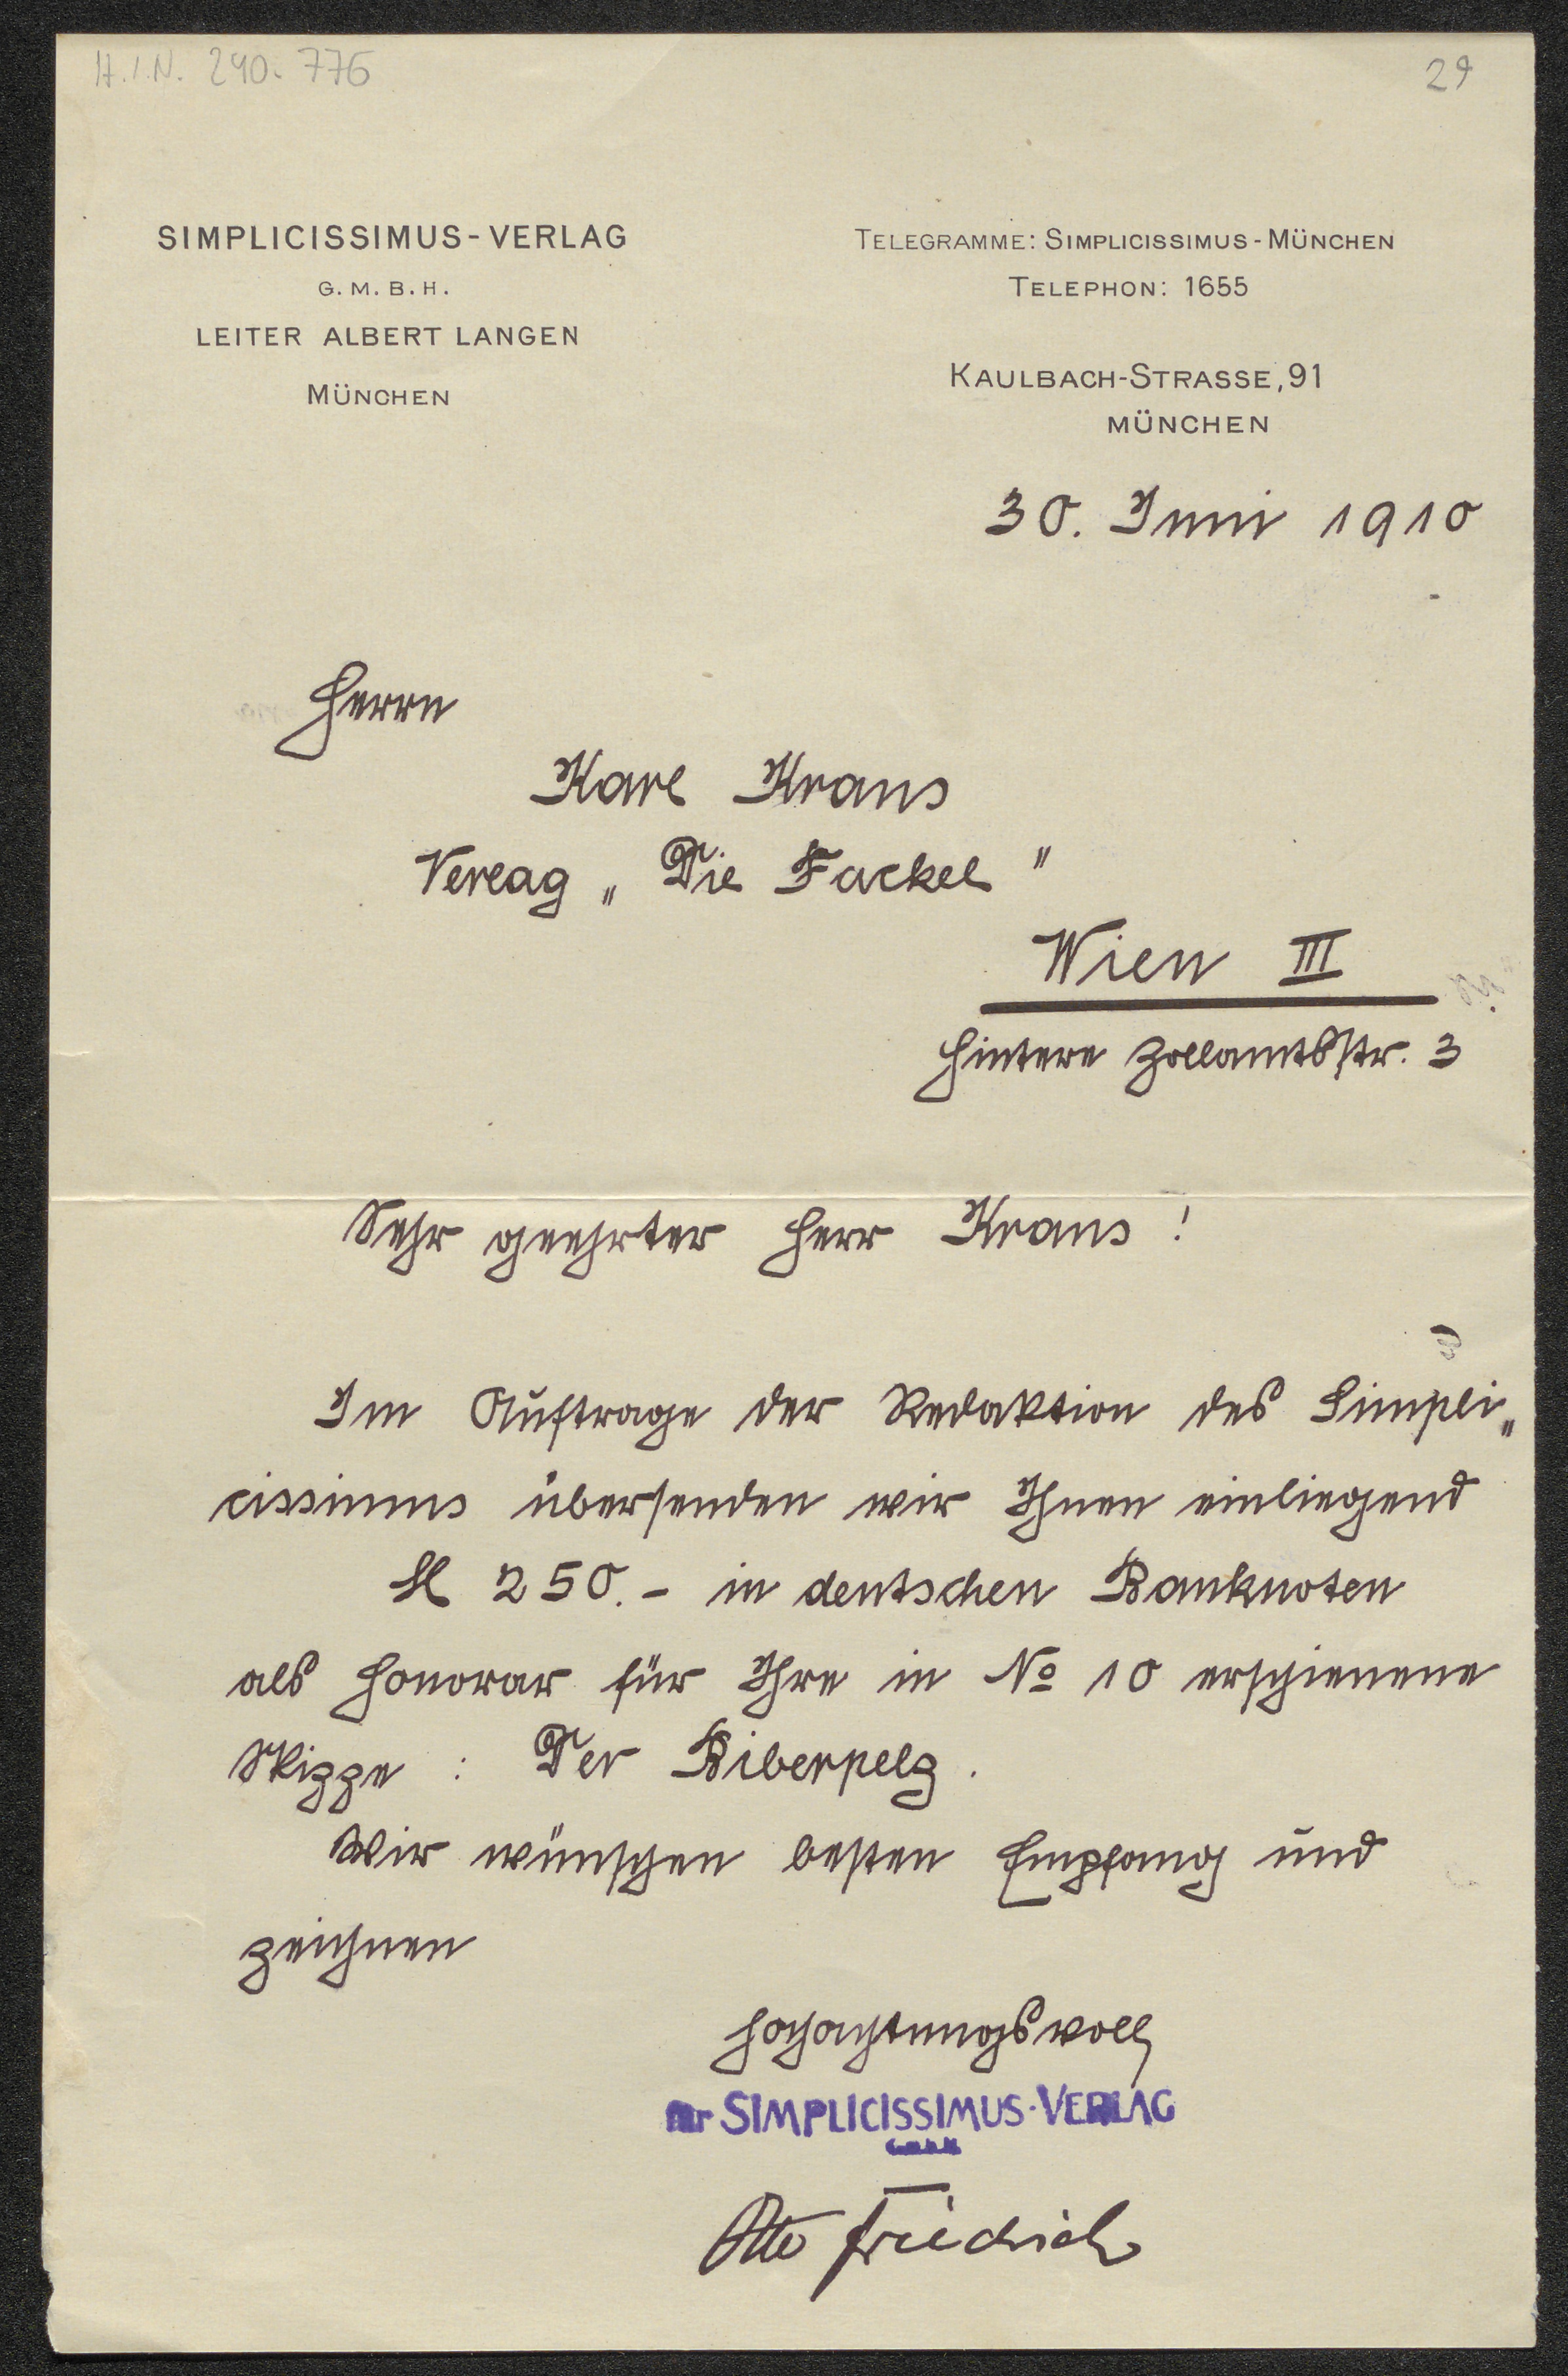 H.I.N. 240.776
29
SIMPLICISSIMUS-VERLAG
G.M.B.H.
LEITER ALBERT LANGEN
MÜNCHEN
TELEGRAMME: SIMPLICISSIMUS-MÜNCHEN
TELEPHON: 1655
KAULBACH-STRASSE, 91
MÜNCHEN
30. Juni 1910
Herrn
Karl Kraus
Verlag „Die Fackel"
Wien III
Hintere Zollamtsstr. 3
Sehr geehrter Herr Kraus!
Im Auftrage der Redaktion des Simpli„
cissimus übersenden wir Ihnen einliegend
M 250.- in deutschen Banknoten
als Honorar für Ihre in No 10 erschienene
Skizze : Der Biberpelz.
Wir wünschen besten Empfang und
zeichnen
Hochachtungsvoll
für SIMPLICISSIMUS-VERLAG
G.m.b.H.
Otto Friedrich